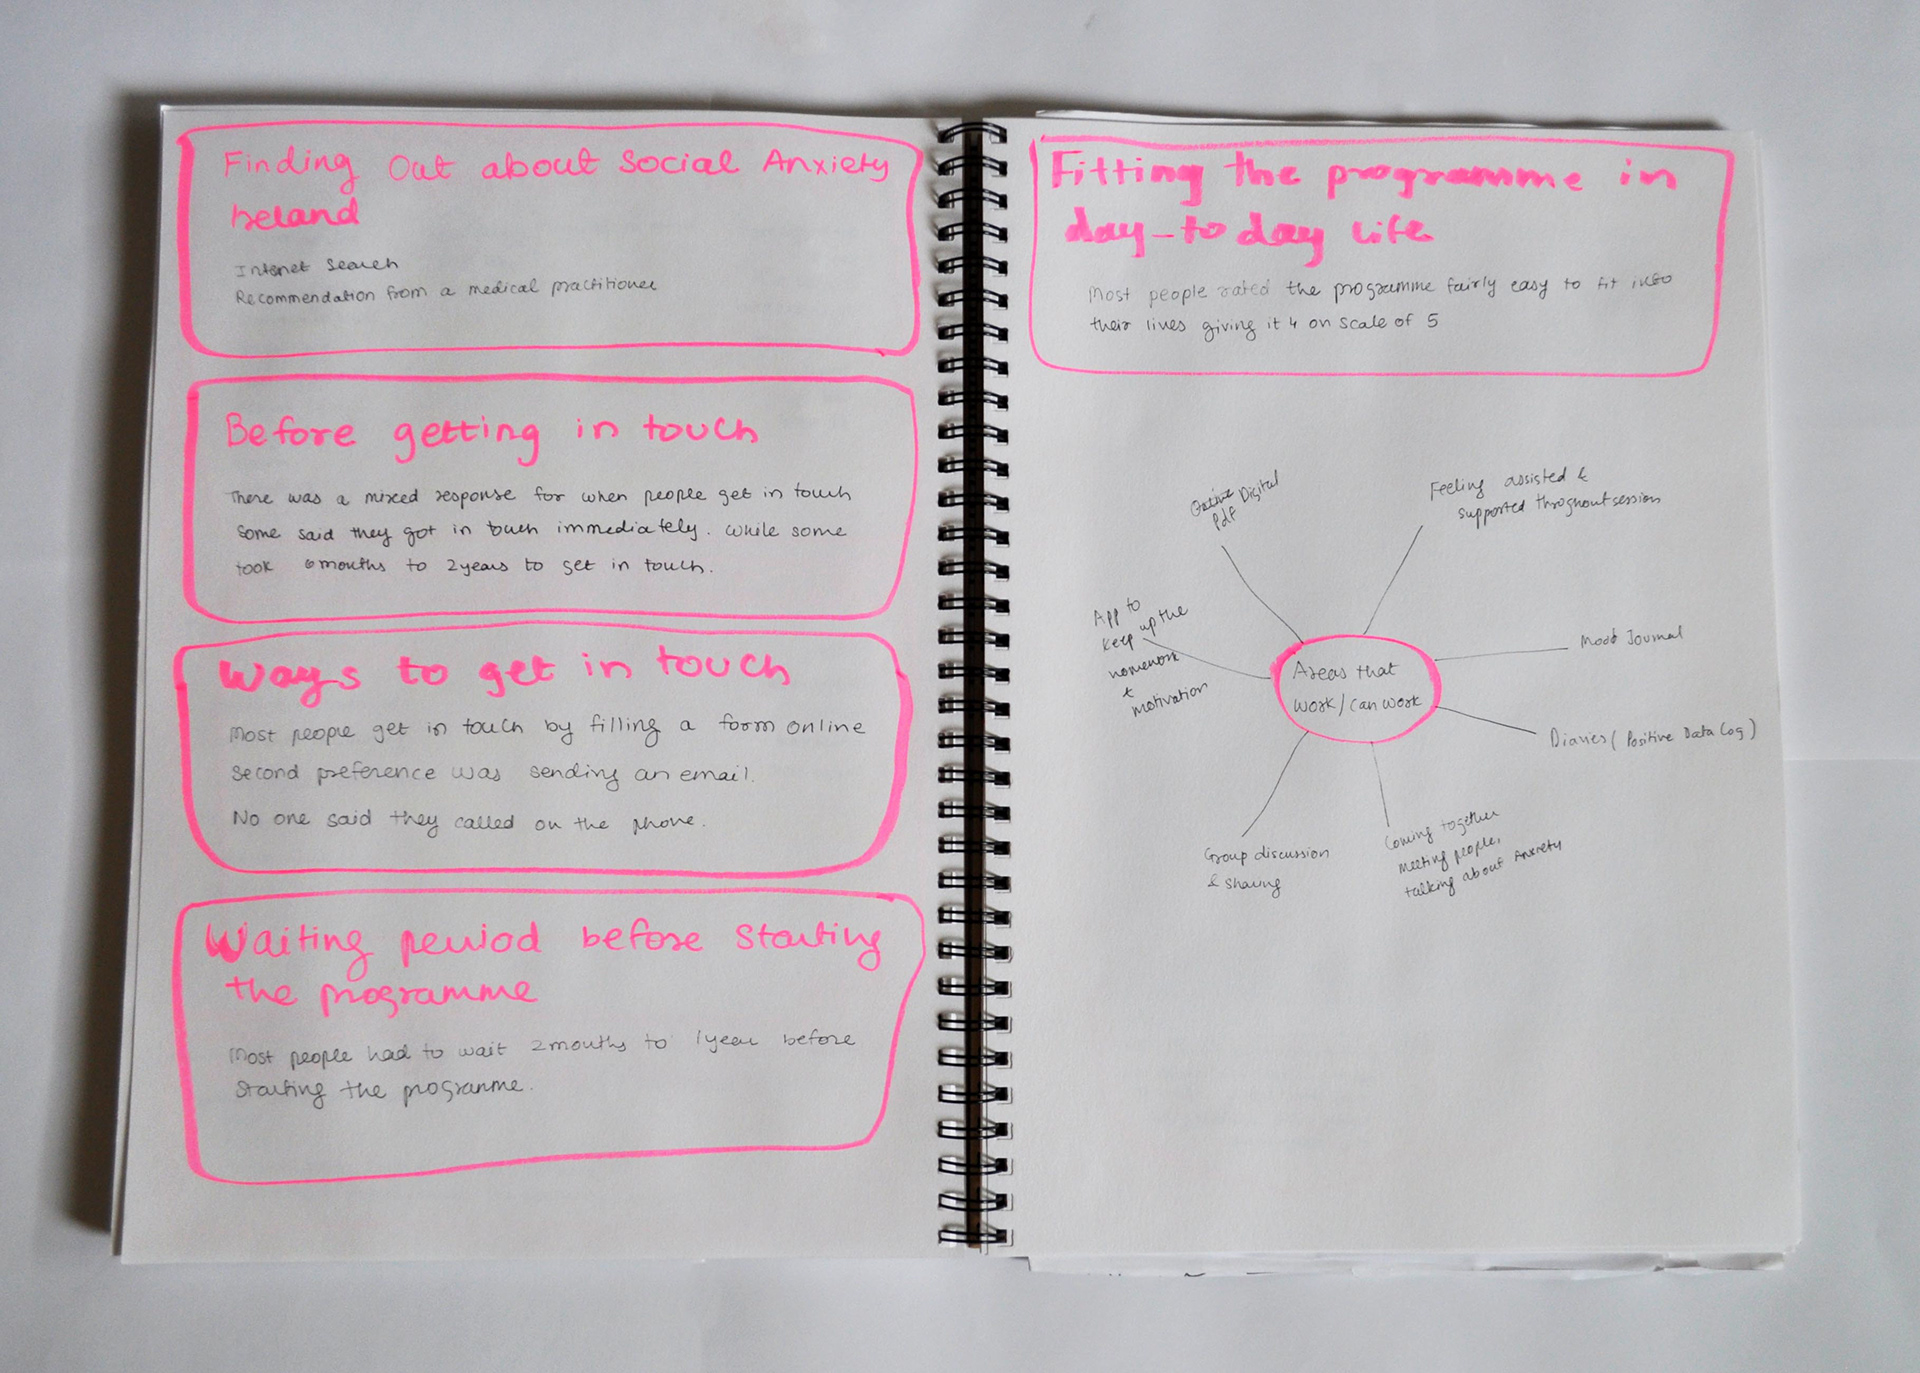 Finding Out about Social Anxiety
Ireland
Internet Search
Recommendation from a medical practitioner
Before getting in touch
There was a mixed response for when people get in touch
Some said they got in touch immediately. While some
took 6 mouths to 2 years to get in touch.
Ways to get in touch
Most people get in touch by filling a form online
Second preference was sending an email.
No one said they called on the phone.
Waiting period before starting
the programme
Most people had to wait 2 mouths to 1 year before
starting the programme.
Fitting the programme in
day-to day life
Most people rated the programme fairly easy to fit into
their lives giving it 4 on scale of 5
Digital
Pdf
Feeling assisted &
supported throughout session
App to
keep up the
homework
&
motivation
Areas that
work/can work
Mood Journal
Diaries (Positive Data Log)
Group discussion
& sharing
Coming together
meeting people,
talking about Anxiety